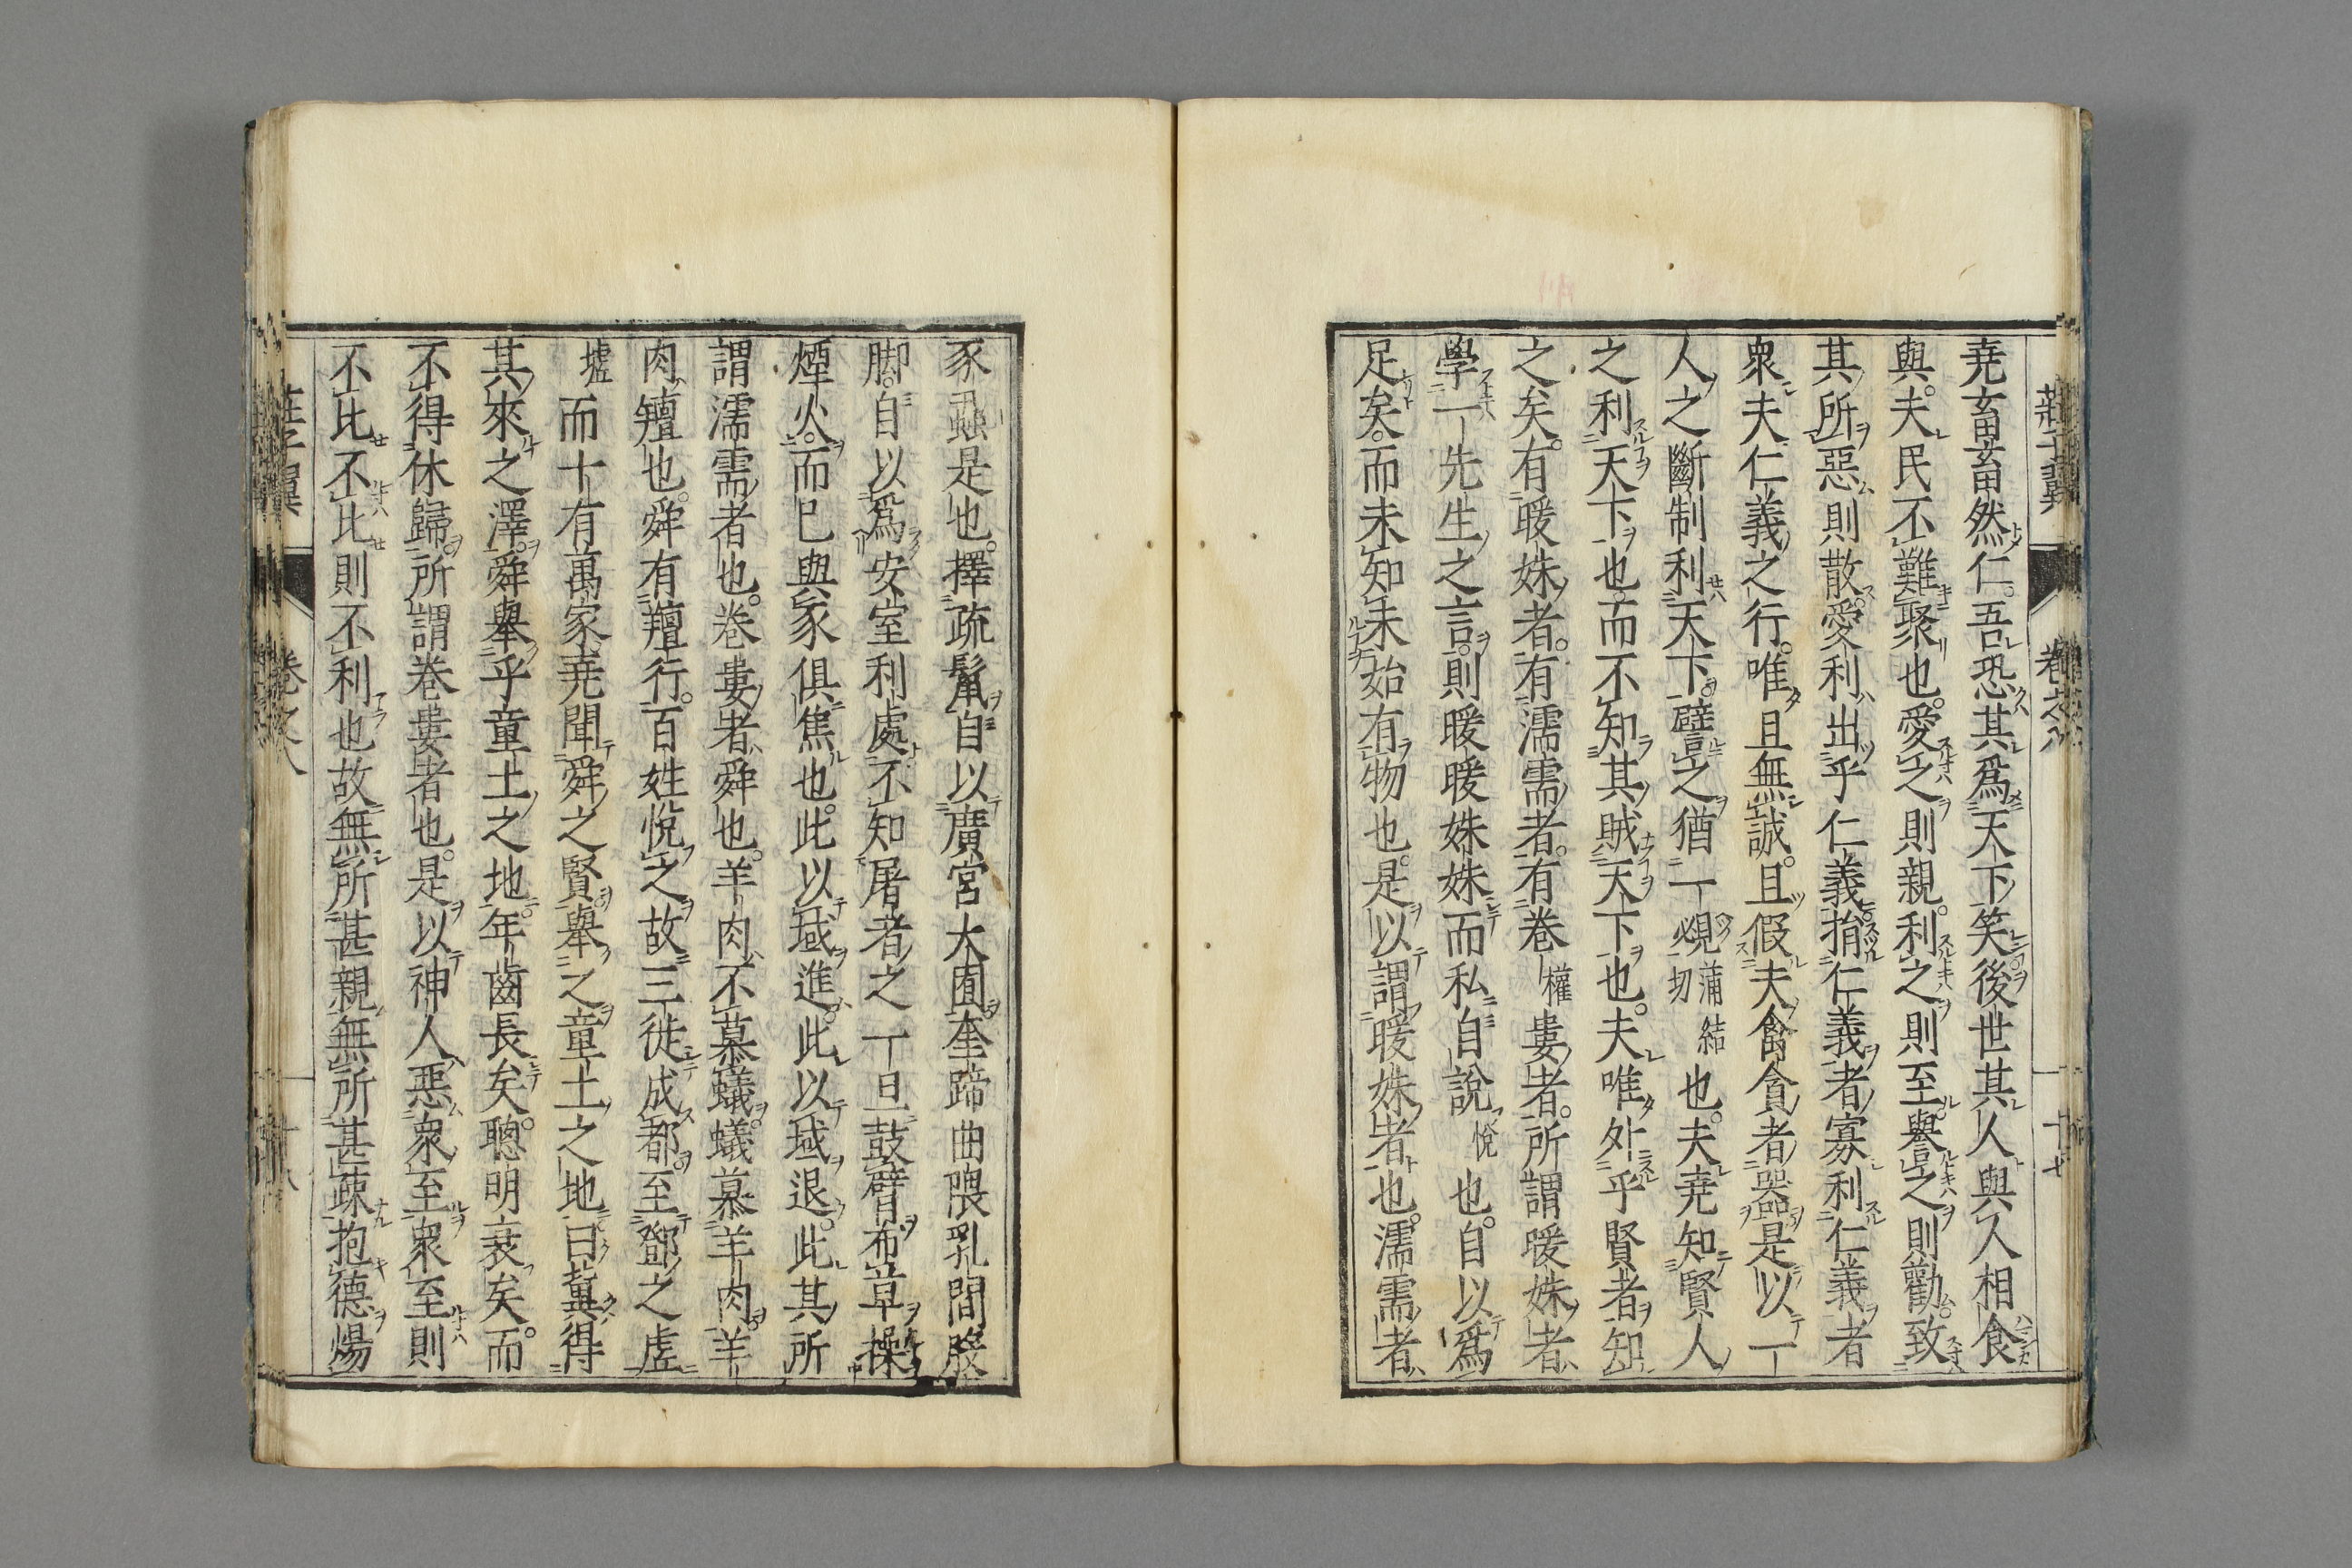 莊子翼 卷之八 十七
堯畜畜然仁。吾恐其爲天下笑後世其人與人相食
與。夫民不難聚也。愛之則親。利之則至。譽之則勸。致
其所惡則散。愛利出乎仁義捐仁義者寡利仁義者
衆夫仁義之行。唯且無誠。且假夫禽貪者器是以一
人之斷制利天下。譬之猶一覕蒲結必切也。夫堯知賢人
之利天下也。而不知其賊天下也。夫唯外乎賢者知
之矣。有暖姝者。有濡需者。有卷權婁者。所謂暖姝者
學一先生之言。則暖暖姝姝而私自說悅也。自以爲
足矣。而未知未始有物也。是以謂暖姝者也。濡需者
豕蝨是也。擇疏鬣自以廣宮大囿。奎蹄曲隈乳間股
脚。自以爲安室利處不知屠者之一旦鼓臂布草操
煙火。而已與豕俱焦也。此以域進。此以域退。此其所
謂濡需者也。卷婁者舜也。羊肉不慕蟻。蟻慕羊肉。羊
肉羶也。舜有羶行。百姓悅之故三徙成都至鄧之虛
墟而十有萬家堯聞舜之賢舉之童土之地曰冀得
其來之澤。舜舉乎童土之地年齒長矣。聰明衰矣。而
不得休歸。所謂卷婁者也。是以神人惡衆至衆至則
不比不比則不利也故無所甚親無所甚疎抱德煬
莊子翼 卷之八 十八